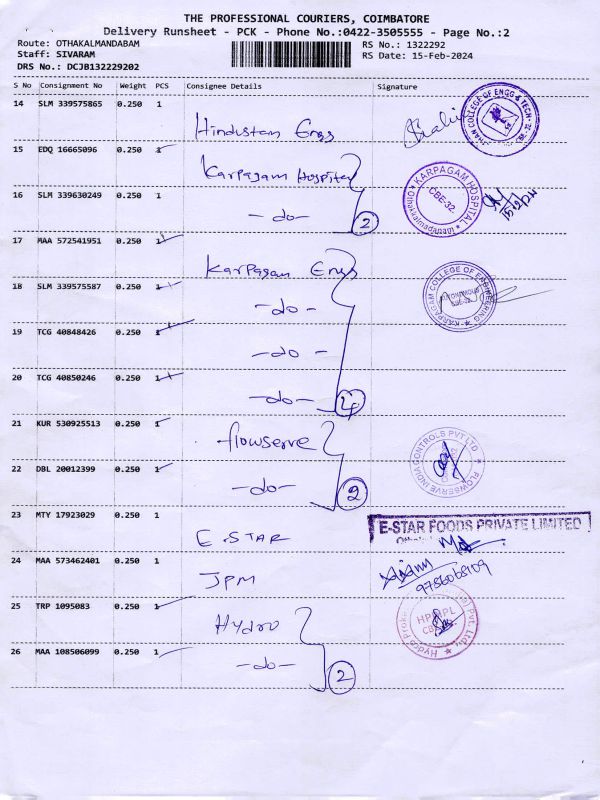 THE PROFESSIONAL COURIERS, COIMBATORE
Delivery Runsheet - PCK - Phone No.:0422-3505555 - Page No.:2
Route: OTHAKALMANDABAM
RS No.: 1322292
Staff: SIVARAM
RS Date: 15-Feb-2024
DRS No.: DCJB132229202
S No Consignment No Weight PCS Consignee Details Signature
14 SLM 339575865 0.250 1
Hindustan Engg
COLLEGE OF ENGG & TECH
15 EDQ 16665096 0.250 1
Karpagam Hospital
KARPAGAM HOSPITAL
CBE-32
Othakkalmandapam
16 SLM 339630249 0.250 1
-do- 2
17 MAA 572541951 0.250 1
Karpagam Engg
KARPAGAM COLLEGE OF ENGINEERING
AUTONOMOUS
18 SLM 339575587 0.250 1
-do-
19 TCG 40848426 0.250 1
-do-
20 TCG 40850246 0.250 1
-do- 4
21 KUR 530925513 0.250 1
flowserve
FLOWSERVE INDIA CONTROLS PVT LTD
22 DBL 20012399 0.250 1
-do- 2
23 MTY 17923029 0.250 1
E.STAR
E-STAR FOODS PRIVATE LIMITED
24 MAA 573462401 0.250 1
JPM
25 TRP 1095083 0.250 1
Hydro
Pvt. Ltd.
26 MAA 108506099 0.250 1
-do- 2